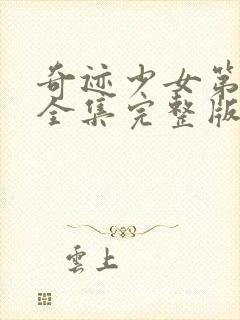 奇迹少女第
全集完整版
雲上